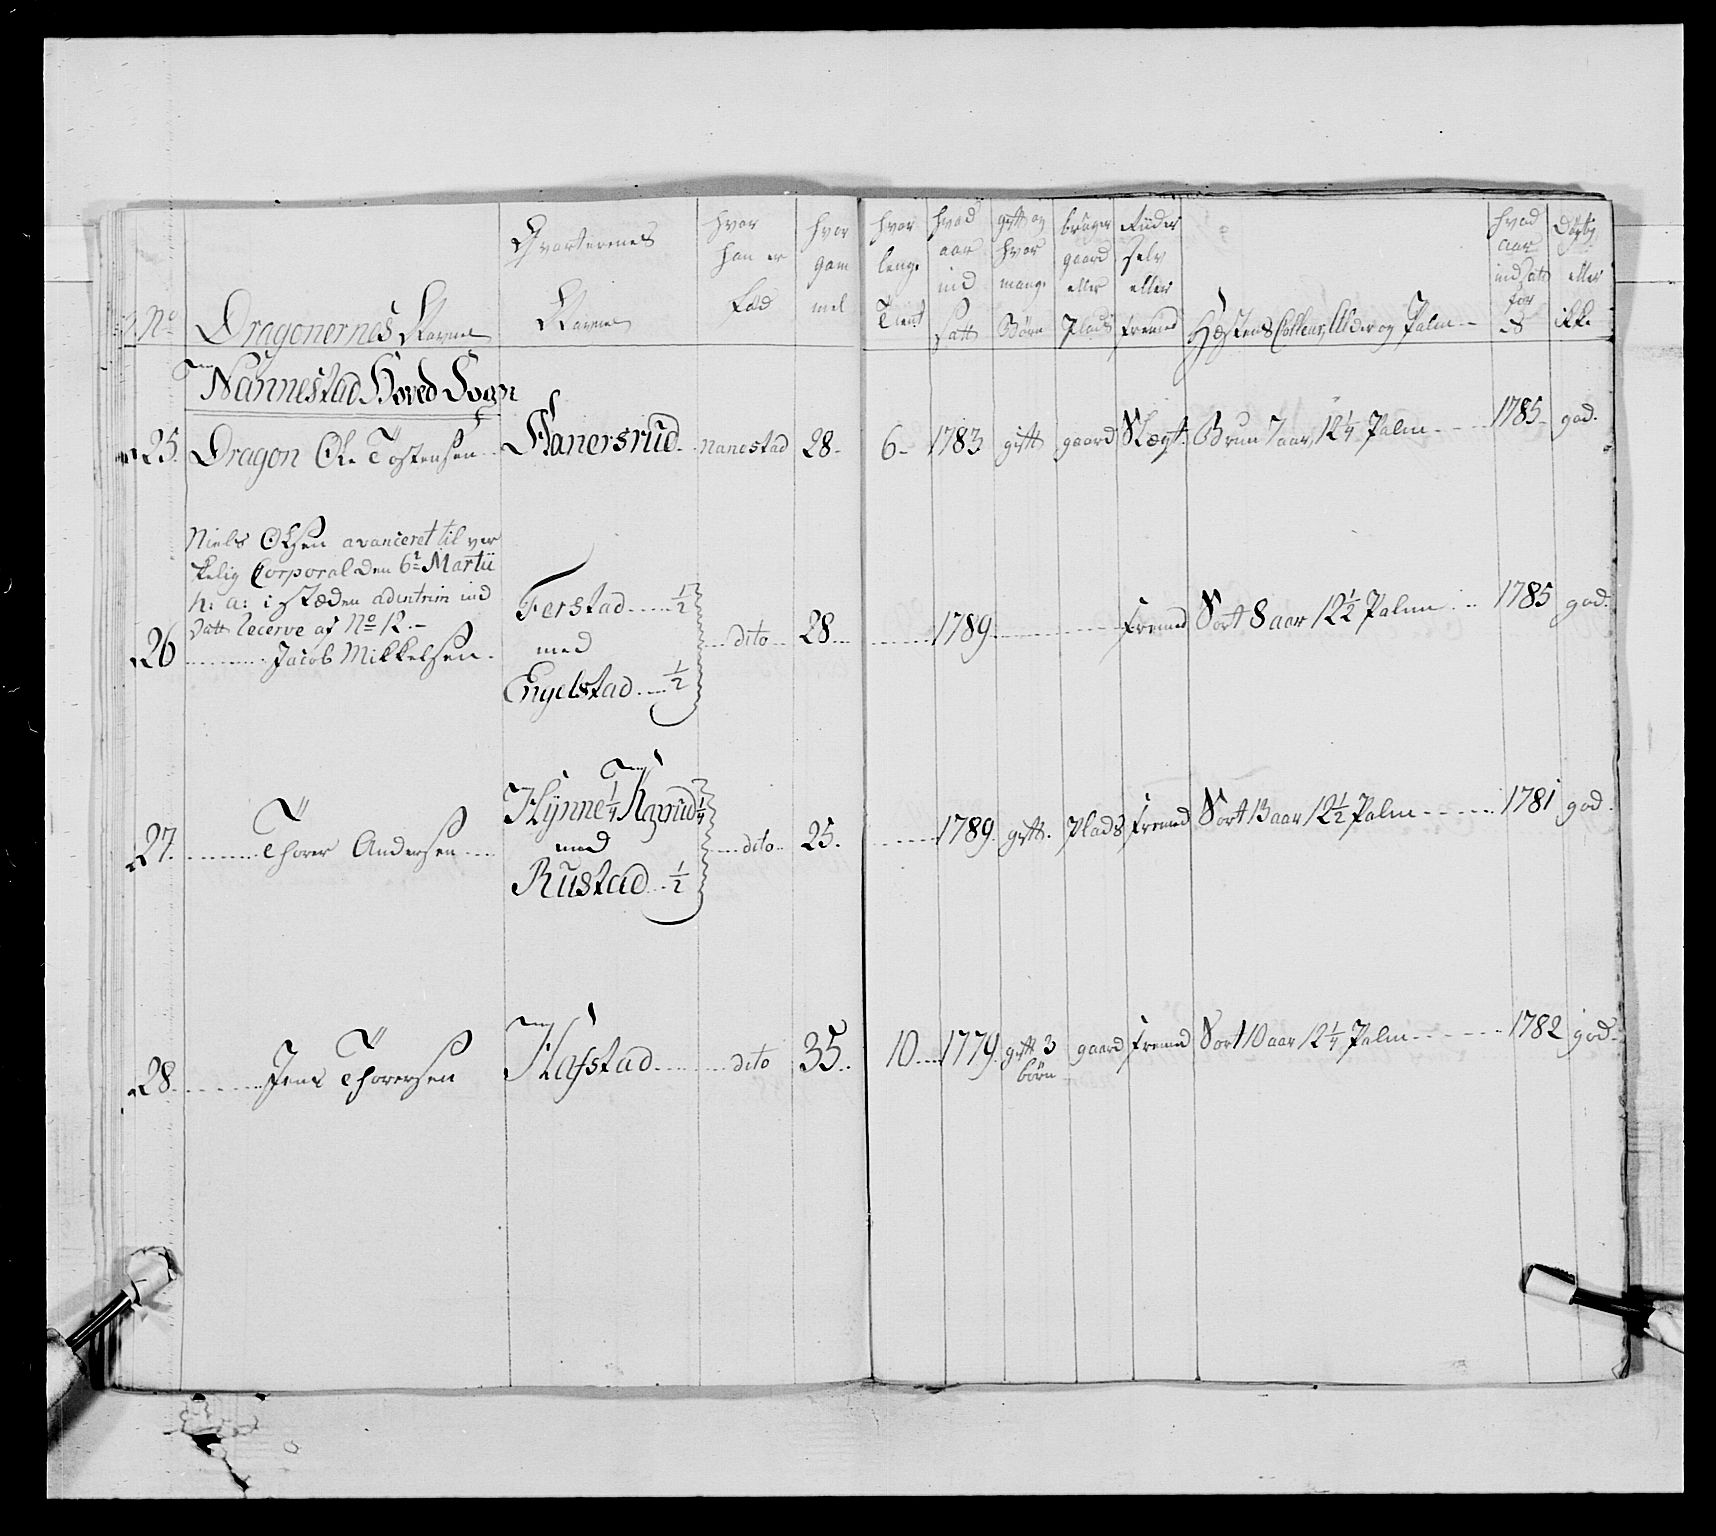 No Dragonernes Navne Qvarterenes Navne hvor han er Fød hvor gam mel hvor lenge Tient hvad aar ind Satt gift og hvor mange Børn bruger gaard eller Plads Riider selv eller fremed Hæstens Coleur, Alder og Palm hvad aar indsatt før 17 Døgtig eller ikke
Nannestad Hoved Sogn
25. Dragon Ole Tostensen Hanersrud Nanestad 28 6 1783 gift gaard Slægt. Brun 7 aar 12¼ Palm 1785 god.
Niels Olsen avanceret til ver
kelig Corporal den 6te Martii
h: a: i stæden adintrim ind
Satt Recerve af No 12.
26 Jacob Mikkelsen Ferstad ½ med Engelstad ½ dito 28 1789 Fremed Sort 8 aar 12½ Palm 1785 god.
27. Thorer Andersen Hynne ¼ Kgsrud ¼ med Rustad ½ dito 25. 1789. gift. Plads Fremed Sort 13 aar 12½ Palm 1781 god.
28 Jens Thorersen Hafstad dito 35. 10 1779 gift 3 børn gaard Fremed Sort 10 aar 12¼ Palm 1782 god.